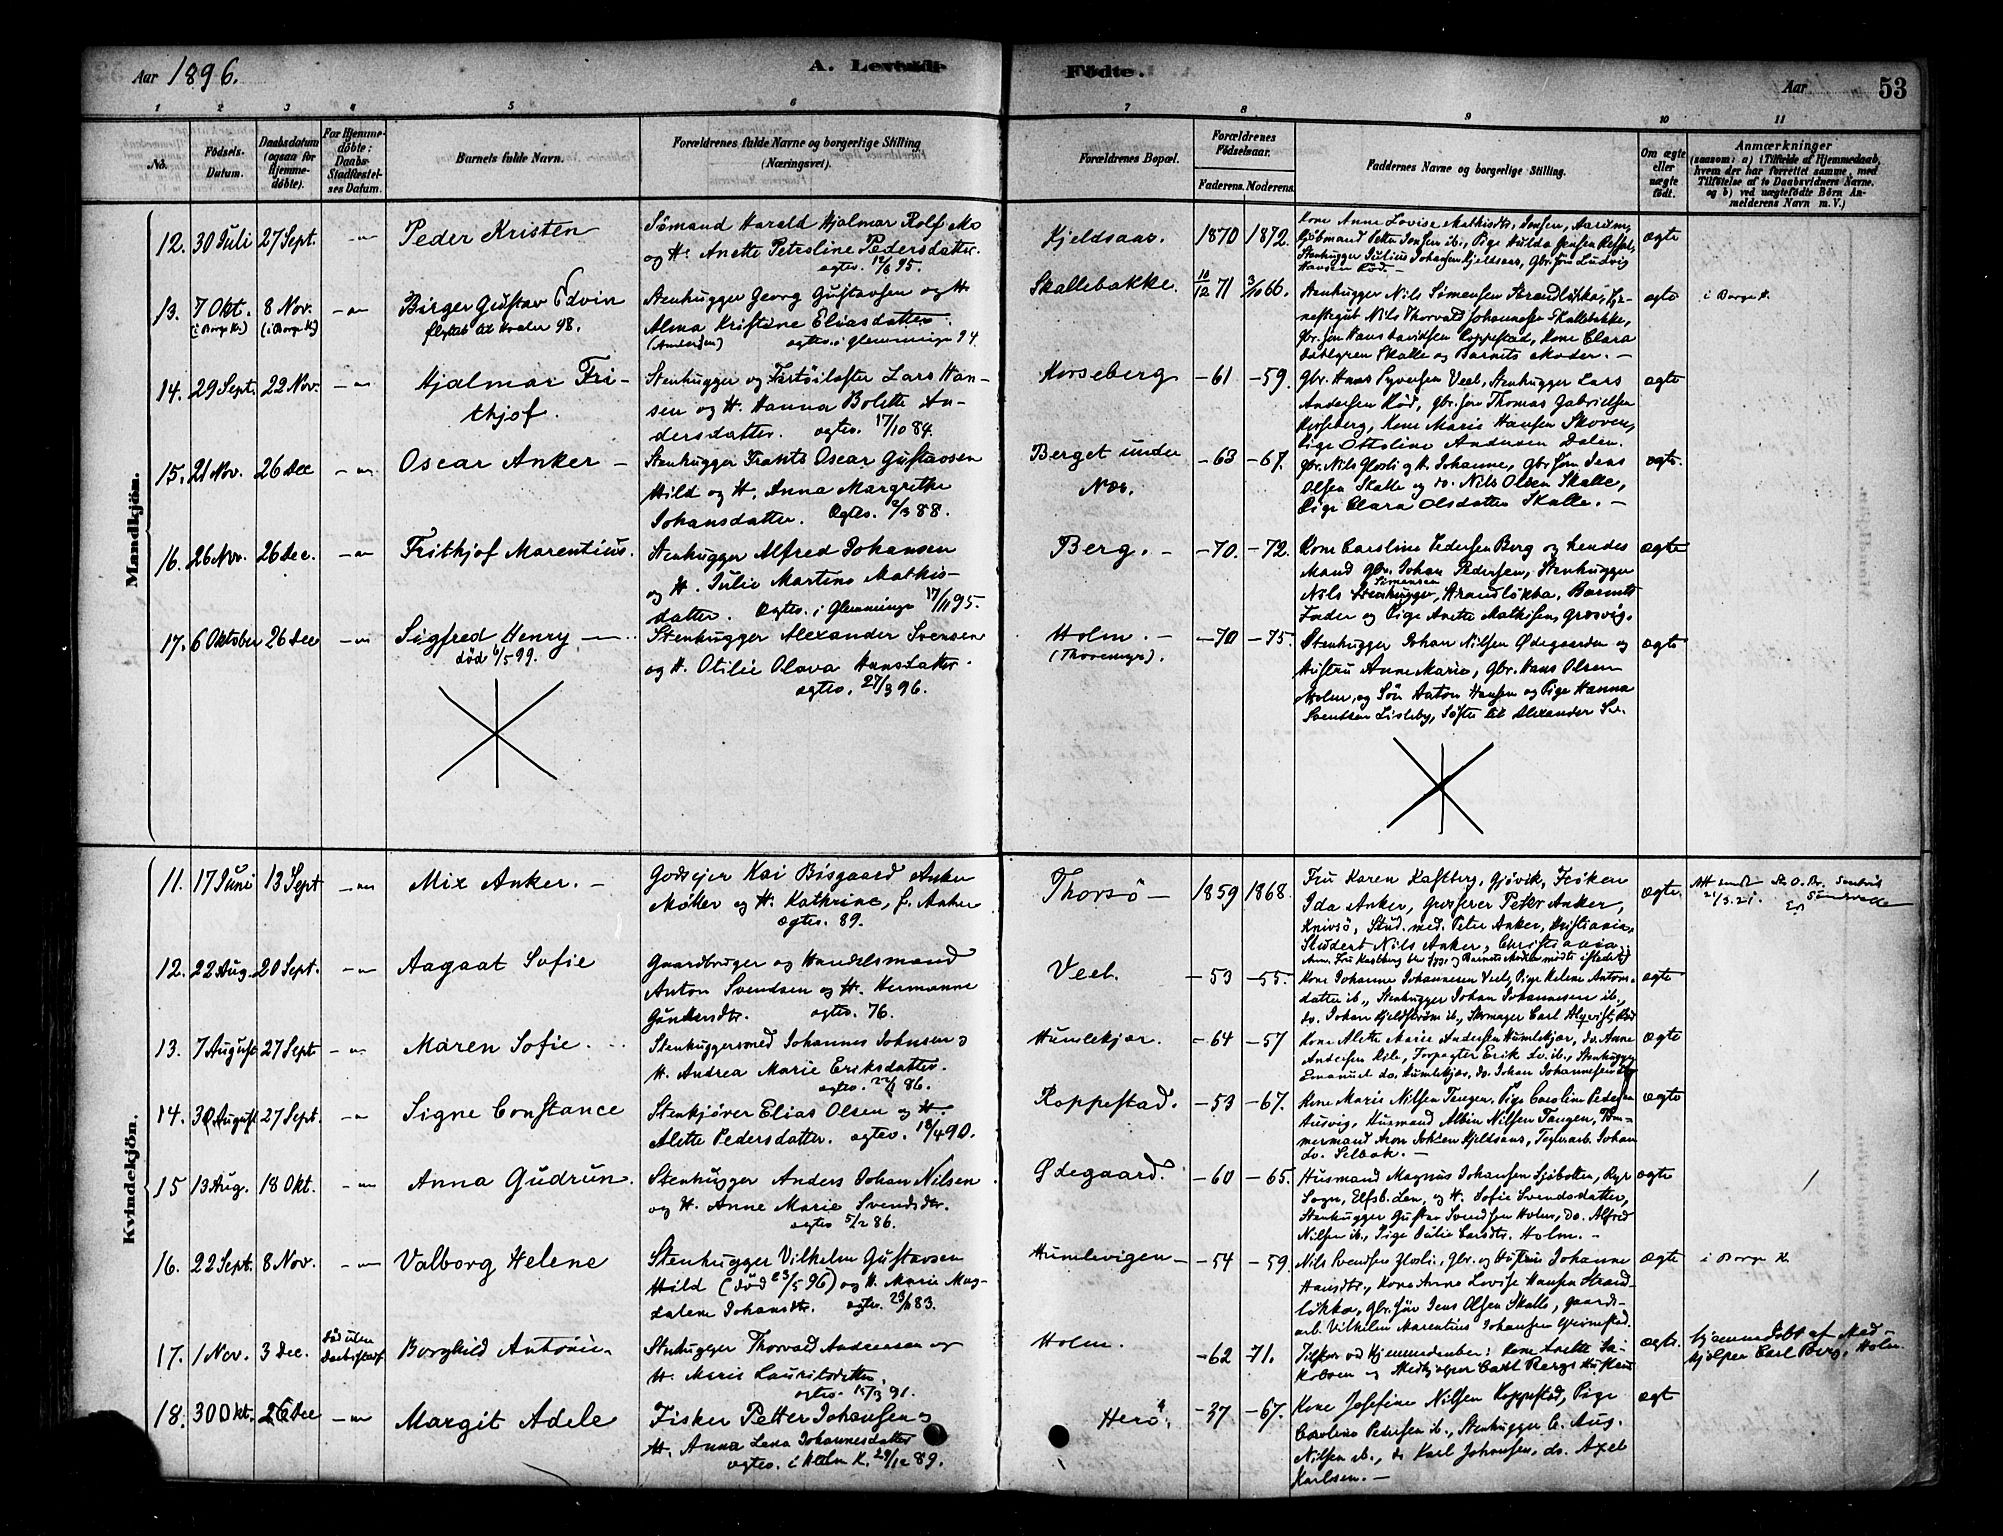 Aar 1896.
A. Levende
Fødte.
Aar
53
1 2 3 4 5 6 7 8 9 10 11
No.
Fødsels-Datum.
Daabsdatum (ogsaa for Hjemmedøbte).
For Hjemmedøbte: Daabs-Stadfæstelses Datum.
Barnets fulde Navn.
Forældrenes fulde Navne og borgerlige Stilling (Næringsvei).
Forældrenes Bopæl.
Forældrenes Fødselsaar.
Faderens. Moderens.
Faddernes Navne og borgerlige Stilling.
Om ægte eller uægte født.
Anmærkninger
(saasom: a) i Tilfælde af Hjemmedaab, hvem der har forrettet samme, med Tilføielse af to Daabsvidners Navne, og b) ved uægtefødte Børn Anmelderens Navn m. V.)
Mandkjøn.
12. 30 Juli 27 Sept. Peder Kristen
Sømand Harald Hjalmar Rolf Mo
og H. Anette Peteline Pedersdatter.
Kjeldsaas. 1870 1872.
Kone Anne Lovise Mathisdtr, Jensen, Aarum,
ægte
13. 7 Okt. 8 Nov. Birger Gustav Edvin
(i Borge K.) (i Borge K.)
Stenhugger Georg Gustavsen og H
Alma Kristine Eliasdatter.
ægtev. i Glemminge 94.
Skallebakke. 10/12 71 3/10 66.
Stenhugger Nils Simensen Strandløkka, Tje-
nestegut Nils Thorvald Johannesen Skallebakke,
Gbr. søn Hans Davidsen Roppestad, Kone Clara
Dahlgren Skalle og Barnets Moder. —
ægte
i Borge K.
14. 29 Sept. 22 Nov. Hjalmar Fri-
thjof.
Stenhugger og Fartøilofter Lars Han-
sen og H. Hanna Bolette An-
dersdatter. ægtev. 17/10 84.
Korseberg —61 —59.
Gbr. Hans Syversen Veel, Stenhugger Lars
Andersen Rød, Gbr. søn Thomas Gabrielsen
Korseberg, Kone Marie Hansen Skoven,
Pige Ottoline Andersen Dalen.
ægte
15. 21 Nov. 26 Dec Oscar Anker —
Stenhugger Frants Oscar Gustavsen
Hild og H. Anna Margrethe
Johansdatter. Ægtev. 2/3 88.
Berget under
Næs.
—63 —67.
Gbr. Nils Glosli og H. Johanne, Gbr. søn Jens
Olsen Skalle og do. Nils Olsen Skalle,
Pige Clara Olsdatter Skalle. —
ægte.
16. 26 Nov. 26 Dec. Frithjof Marentius.
Stenhugger Alfred Johansen
og H. Julie Martine Mathis-
datter. Ægtev. i Glemminge 17/11 95.
Berg. — —70. —72.
Kone Caroline Pedersen Berg og hendes
Mand Gbr. Johan Pedersen, Stenhugger
Simensen
Nils Stenhugger, Strandløkka, Barnets
Fader og Pige Anette Mathisen, Græsvig.
ægte
17. 6 Oktober 26 Dec Sigfred Henry —
død 6/5 99.
Stenhugger Alexander Svensen
og H. Otilie Olava Hansdatter.
ægtev. 27/3 96.
Holm. —
—70 —75.
Stenhugger Johan Nilsen Ødegaarden og
Hustru Anne Marie, Gbr. Hans Olsen
Holm, og Søn Anton Hansen og Pige Hanna
Svendsen Lisleby, Søster til Alexander Sv.
ægte
Kvindekjøn.
11. 17 Juni 13 Sept Mix Anker. —
Godseier Kai Bisgaard Anker
Møller og H. Kathrine, f. Anker
Ægtev. 89.
Thorsø — 1859 1868.
Fru Karen Kastberg, Gjøvik, Frøken
Ida Anker, Grosserer Peter Anker,
Knivsø, Stud. med. Peter Anker, Kristiania,
Student Nils Anker, Christiania.
ægte.
12. 22 Aug. 20 Sept. Aagaat Sofie
Gaardbruger og Handelsmand
Anton Svendsen og H. Hermanne
Gundersdtr. ægtev. 76.
Veel. —53 —55.
Kone Johanne Johannesen Veel, Pige Helene Antons-
datter ib., Stenhugger Johan Johannesen ib.,
do. Johan Kjeldstrøm ib., Skomager Carl Alqvist, Rød
ægte
13. 7 August 27 Sept Maren Sofie.
Stenhuggersvend Johannes Johnsen og
H. Andrea Marie Eriksdatter.
Humlekjær. —64 —57
Kone Alette Marie Andersen Humlekjær, do. Anne
Andersen Kile, Forpagter Erik do. ib., Stenhugger
Emanuel do. Humlekjær, do. Johan Johannesen
ægte
14. 30 August 27 Sept. Signe Constance
Stenkjører Elias Olsen og H.
Alette Pedersdatter. ægtev. 18/4 90.
Roppestad. —53 —67.
Kone Marie Nilsen Tangen, Pige Caroline Pedersen
Husmand Albin Nilsen Tangen, Tøm-
mermand Aron Johnsen Kjeldsaas, Teglarb. Johan
do. Selbak. —
ægte
15 13 Aug. 18 Okt. Anna Gudrun.
Stenhugger Anders Johan Nilsen
og H. Anne Marie Svendsdtr.
ægtev 5/12 86.
Ødegaard. —60 —65.
Husmand Magnus Johansen Sjøbotten, Ryr
Sogn, Elfsb. Len, og H. Sofie Svendsdatter,
Stenhugger Gustav Svendsen Holm, do. Alfred
Nilsen ib., Pige Julie Larsdtr. Holm. —
ægte
16. 22 Sept. 8 Nov. Valborg Helene
Stenhugger Vilhelm Gustavsen
Hild (død 23/5 96) og H. Marie Mag-
dalene Johansdtr.
Humlevigen — —54 —59.
Nils Svendsen Glosli, Gbr. og Hustru Johanne
Hansdtr., Kone Anne Lovise Hansen Strand-
løkka, Gbr. søn Jens Olsen Skalle, gaards-
arb. Vilhelm Marentius Johansen Grimstad.
ægte
i Borge K.
17. 1 Nov. 3 Dec. Død uden
Daabsstadf.
Borghild Antonie.
Stenhugger Thorvald Andreassen og
H. Marie Lauritsdatter.
ægtev. 91.
Holm. —62 71.
ægte.
Hjemmedøbt af Med-
hjælper Carl Berg, Holm.
18. 30 Okt. 26 Dec Margit Adele
Fisker Petter Johansen og
H. Anna Lena Johannesdatter
ægtev. i 29/12 89.
Herø. —37 —67.
Kone Josefine Nilsen Roppestad, Pige
Caroline Pedersen ib., Stenhugger C. Aug.
Nilsen ib., do Karl Johansen, do. Axel
Karlsen. —
ægt